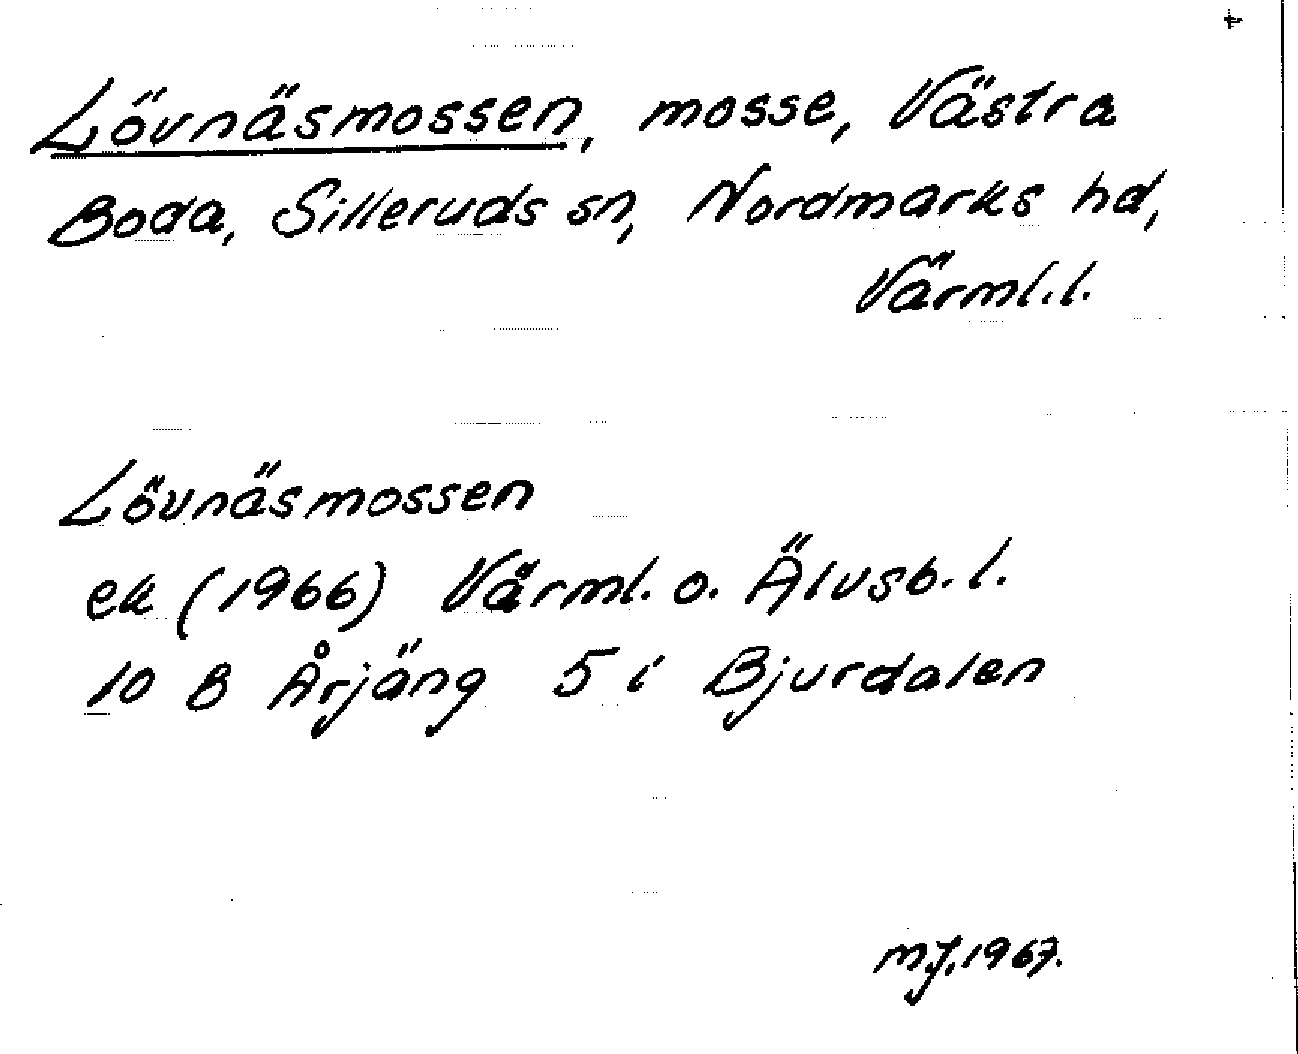 Lövnäsmossen, mosse, Västra
Boda, Silleruds sn, Nordmarks hd,
Värml.l.
Lövnäsmossen
ek (1966) Värml. o. Älvsb. l.
10 B Årjäng 5 i Bjurdalen
MJ, 1967.